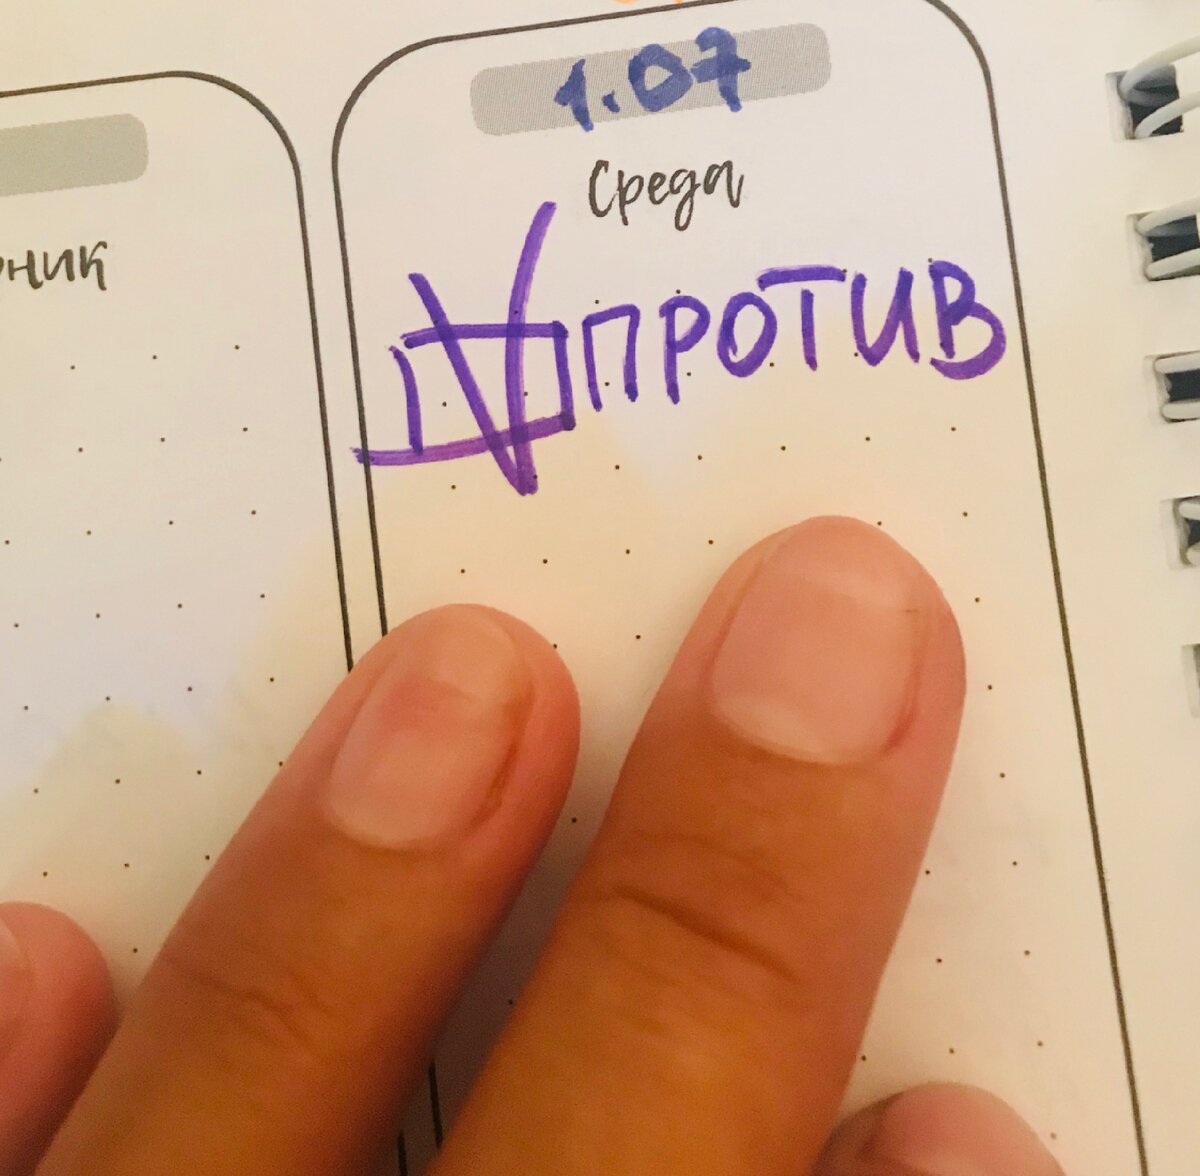 1.07
Среда
ПРОТИВ